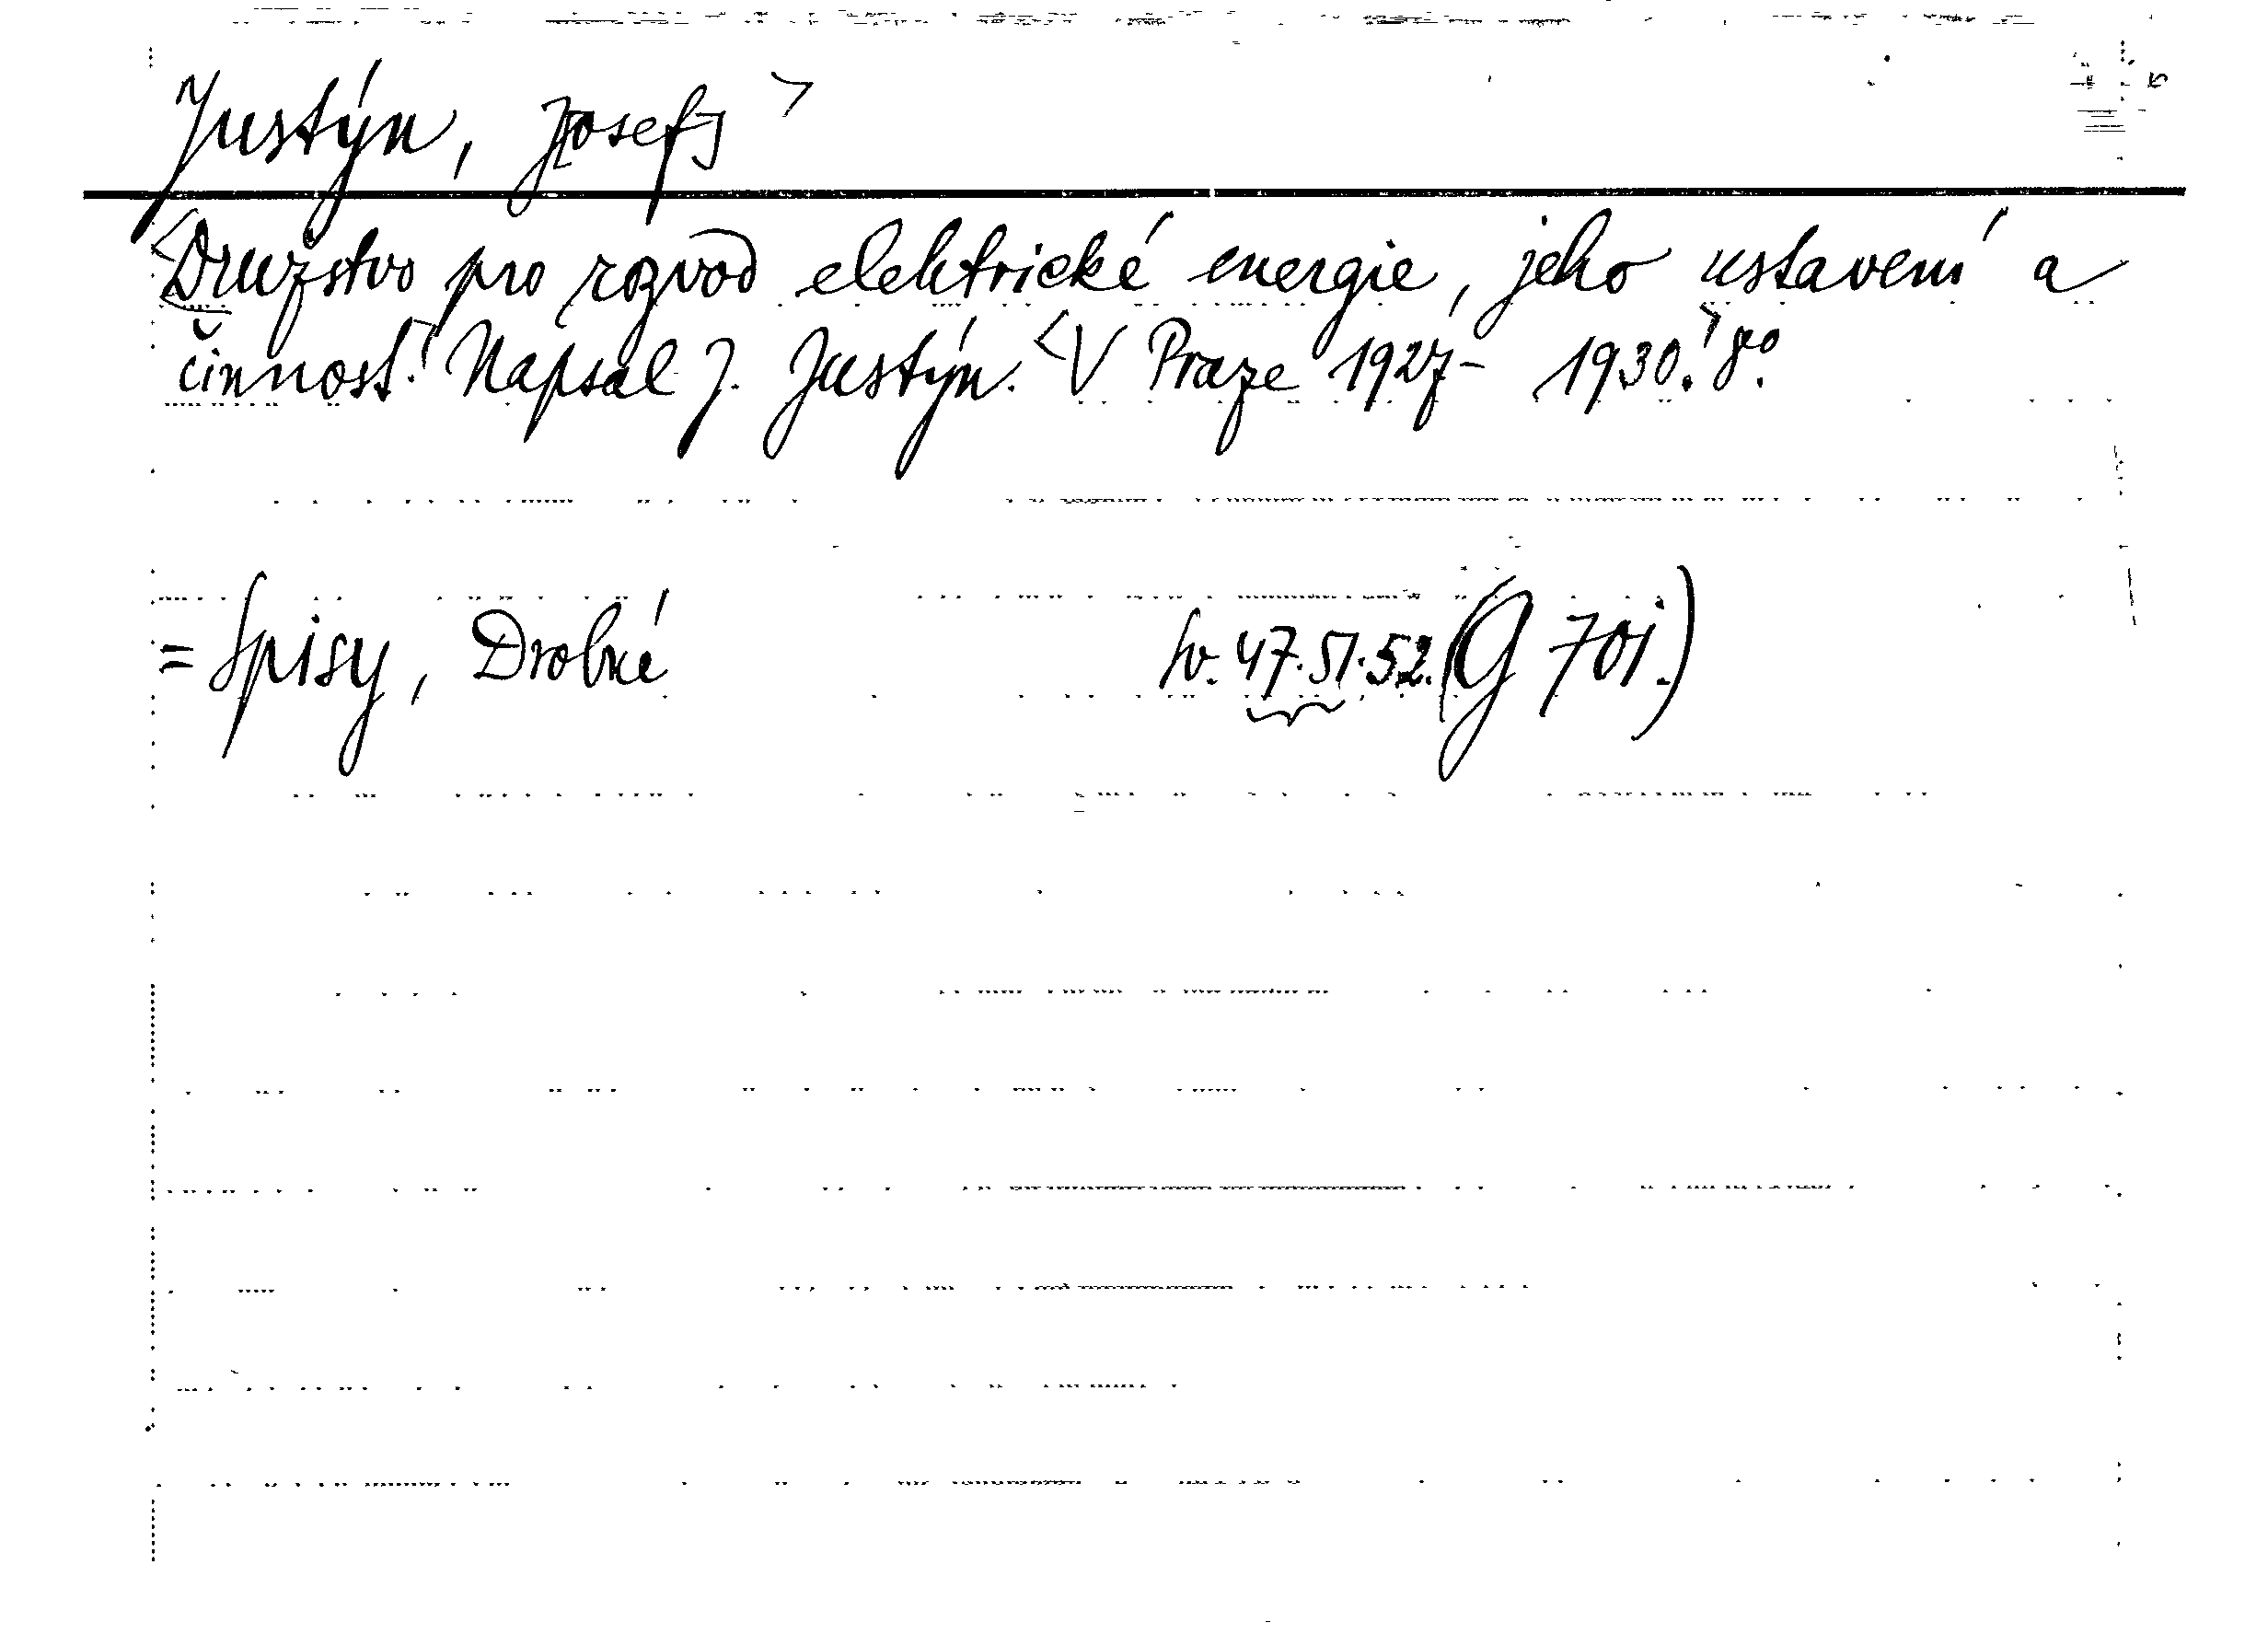 Justýn, J[osef]
Družstvo pro rozvod elektrické energie, jeho ustavení a
činnost. Napsal J. Justýn. V Praze 1927- 1930. 8°.
= Spisy, Drobné sv. 47.51.52. (G 701.)